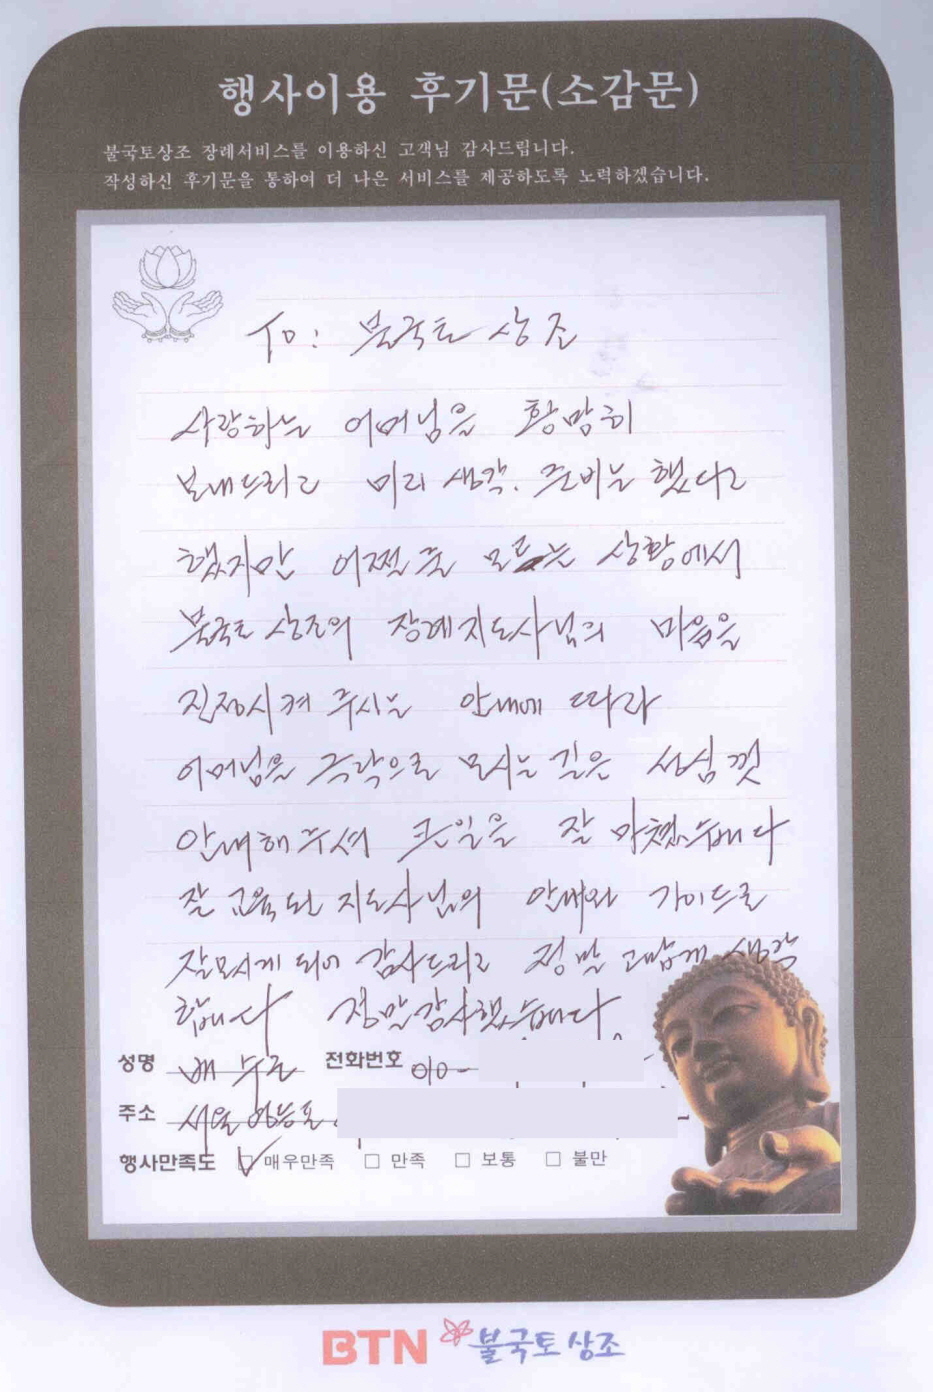 행사이용 후기문(소감문)
불국토상조 장례서비스를 이용하신 고객님 감사드립니다.
작성하신 후기문을 통하여 더 나은 서비스를 제공하도록 노력하겠습니다.
To: 불국토 상조
사랑하는 어머님을 황망히
보내드리고 미리 생각. 준비는 했다고
했지만 어쩔 줄 모르는 상황에서
불국토 상조의 장례지도사님의 마음을
진정시켜 주시는 안내에 따라
어머님을 극락으로 모시는 길은 성심껏
안내해 주셔 큰일을 잘 마쳤습니다
잘 교육된 지도사님의 안내와 가이드로
잘모시게 되어 감사드리고 정말 고맙게 생각
합니다 정말감사했습니다
성명 배 전화번호 010-
주소 서울 영등포
행사만족도 ☑ 매우만족 □ 만족 □ 보통 □ 불만
BTN 불국토 상조